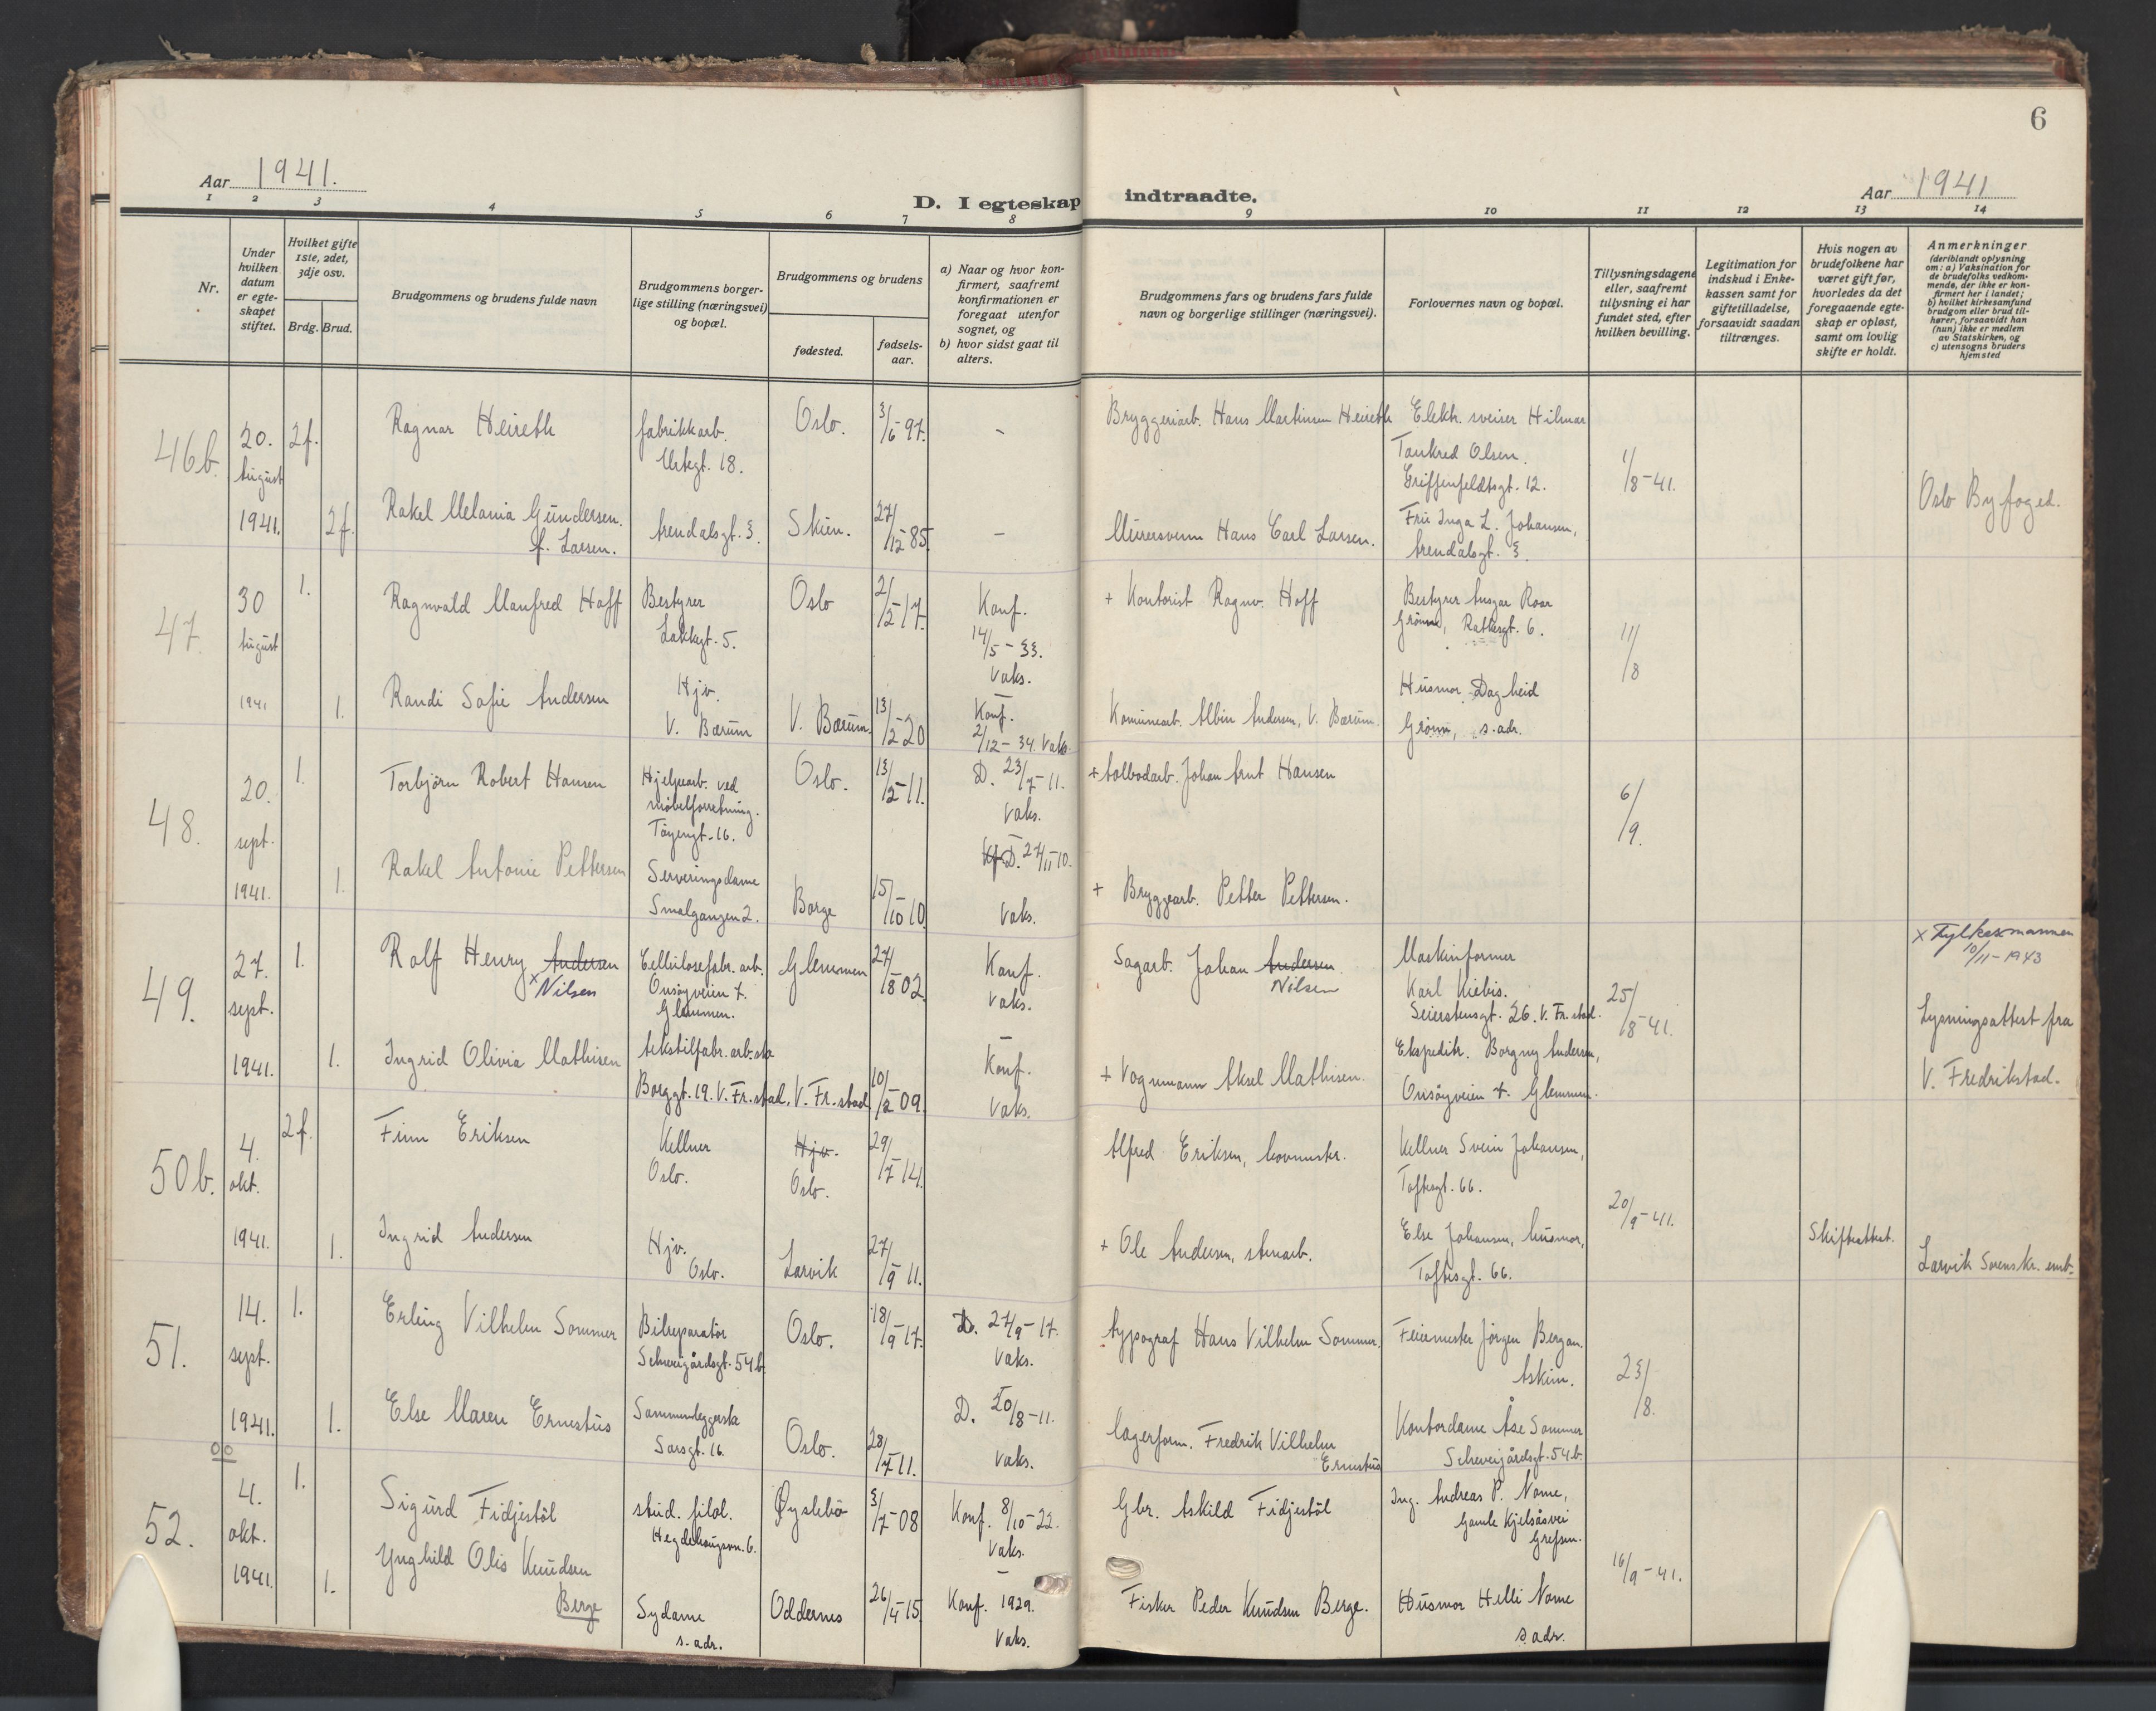 6
Aar 1941.
D. I egteskap indtraadte.
Aar 1941
1 2 3 4 5 6 7 8 9 10 11 12 13 14
Nr.
Under hvilken datum er egteskapet stiftet.
Hvilket gifte 1ste, 2det, 3dje osv.
Brdg. Brud.
Brudgommens og brudens fulde navn
Brudgommens borgerlige stilling (næringsvei) og bopæl.
Brudgommens og brudens
fødested.
fødselsaar.
a) Naar og hvor konfirmert, saafremt konfirmationen er foregaat utenfor sognet, og
b) hvor sidst gaat til alters.
Brudgommens fars og brudens fars fulde navn og borgerlige stillinger (næringsvei).
Forlovernes navn og bopæl.
Tillysningsdagene eller, saafremt tillysning ei har fundet sted, efter hvilken bevilling.
Legitimation for indskud i Enkekassen samt for giftetilladelse, forsaavidt saadan tiltrænges.
Hvis nogen av brudefolkene har været gift før, hvorledes da det foregaaende egteskap er opløst, samt om lovlig skifte er holdt.
Anmerkninger
(deriblandt oplysning om: a) Vaksination for de brudefolks vedkommende, der ikke er konfirmert her i landet; b) hvilket kirkesamfund brudgom eller brud tilhører, forsaavidt han (hun) ikke er medlem av Statskirken, og c) utensogns bruders hjemsted
46b. 20. August 1941.
2f. Ragnar Heireth
fabrikkarb. Urtegt. 18.
Oslo. 3/6-97. -
Bryggeriarb. Hans Martinsen Heireth
Elektr. sveiser Hilmar
Tankred Olsen.
Griffenfeldtsgt. 12.
1/8-41.
Oslo Byfoged.
2f. Rakel Melania Gundersen.
f. Larsen.
Arendalsgt. 3.
Skien. 27/12-85. -
Murersvenn Hans Carl Larsen.
Fru Inga L. Johansen,
Arendalsgt. 3.
47. 30 August 1941
1. Ragnvald Manfred Hoff
Bestyrer
Lakkegt. 5.
Oslo 2/2-17.
Konf.
14/5-33.
Vaks.
+ Kontorist Ragnv. Hoff
Bestyrer Ansgar Roar
Grønn, Ratkesgt. 6.
11/8
1. Randi Sofie Andersen
Hjv.
V. Bærum
V. Bærum. 13/2-20
Konf.
2/12-34. Vaks.
Komunearb. Albin Andersen, V. Bærum.
Husmor Dagheid
Grønn, s. adr.
48. 20. sept. 1941.
1. Torbjørn Robert Hansen
Hjelpearb. ved
møbelforretning.
Tøyengt. 16.
Oslo. 13/2-11.
D. 23/7-11.
Vaks.
+ Tolbodarb. Johan Arnt Hansen
6/9.
1. Rakel Antonie Pettersen
Serveringsdame
Smalgangen 2.
Borge 15/10 10
Kf D. 27/11-10.
Vaks.
+ Bryggearb. Petter Pettersen.
49. 27. sept. 1941.
1. Rolf Henry Andersen
x Nilsen
Cellulosefabr. arb.
Onsøyveien 7.
Glemmen.
Glemmen 27/8 02.
Konf.
Vaks.
Sagarb. Johan Andersen
Nilsen
Maskinformer
Karl Kiebis.
Seierstensgt. 26. V. Fr.stad.
25/8-41.
x Fylkesmannen
10/11-1943
Lysningsattest fra
V. Fredrikstad.
1. Ingrid Olivia Mathisen
tekstilfabr. arb.ska
Borggt. 19. V. Fr.stad,
V. Fr.stad 10/2 09.
Konf.
Vaks.
+ Vognmann Aksel Mathisen.
Ekspeditr. Borgny Andersen,
Onsøyveien 7. Glemmen.
50b. 4. okt. 1941.
2f. Finn Eriksen
Kellner
Oslo.
Hjv.
Oslo. 29/7-14.
Alfred Eriksen, hovmester.
Kellner Svein Johansen,
Toftesgt. 66.
20/9-41.
1. Ingrid Andersen
Hjv.
Oslo.
Larvik 27/9 11.
+ Ole Andersen, stenarb.
Else Johansen, husmor,
Toftesgt. 66.
Skifteattest.
Larvik Sorenskr. emb.
51. 14. sept. 1941.
1. Erling Vilhelm Sommer
Bilreparatør
Schweigårdsgt. 54 b.
Oslo. 18/9-17.
D. 27/9-17.
Vaks.
typograf Hans Vilhelm Sommer.
Feiermester Jørgen Bergan.
Askim.
23/8.
1. Else Maren Ernestus
Sammenleggerska
Sarsgt. 16.
Oslo. 28/7 11.
D. 20/8-11.
Vaks.
lagerform. Fredrik Vilhelm
Ernestus
Kontordame Åse Sommer
Schweigårdsgt. 54 b.
oo
52. 4. okt. 1941.
1. Sigurd Fidjestøl
stud. filol.
Hegdehaugsvn. 6.
Øyslebø 3/7-08
Konf. 8/10-22.
Vaks.
Gbr. Askild Fidjestøl
Ing. Andreas P. Nome,
Gamle Kjelsåsvei
Grefsen.
16/9-41.
1. Ynghild Olis Knudsen
Berge
Sydame
s. adr.
Oddernes 26/4-15.
Konf. 1929.
Vaks.
Fisker Peder Knudsen Berge.
Husmor Helli Nome
s. adr.